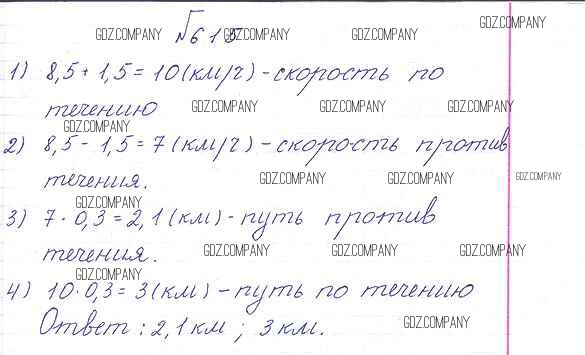 №615
1) 8,5 + 1,5 = 10 (км/г) - скорость по
течению
2) 8,5 - 1,5 = 7 (км/г) - скорость против
течения.
3) 7 · 0,3 = 2,1 (км) - путь против
течения.
4) 10 · 0,3 = 3 (км) - путь по течению
Ответ: 2,1 км; 3 км.
GDZ.COMPANY
GDZ.COMPANY GDZ.COMPANY GDZ.COMPANY
GDZ.COMPANY GDZ.COMPANY GDZ.COMPANY
GDZ.COMPANY
GDZ.COMPANY GDZ.COMPANY GDZ.COMPANY
GDZ.COMPANY
GDZ.COMPANY GDZ.COMPANY GDZ.COMPANY
GDZ.COMPANY
GDZ.COMPANY